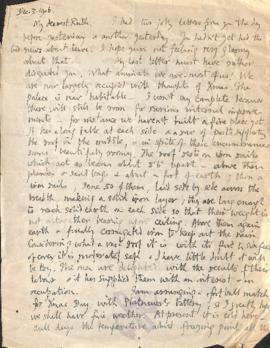 Dec. 3. 1916.
My dearest Ruth, I had two jolly letters from you the day
before yesterday & another yesterday. You hadn't yet had the
bad news about leave. I hope you're not feeling very gloomy
about that. My last letter must have rather
disgusted you. What animals we are, most of us! We
are now largely occupied with thoughts of Xmas. The
palace is now habitable. I won't say complete because
there will still be room for various internal improve-
ments — for instance we haven't built a fire place yet.
It has a long table at each side & a row of posts supporting
the roof in the middle, & in spite of their encumbrance
some beautifully roomy. The roof rests on iron rails
which act as beams about 3ft apart & above them
& about a foot of earth
iron rails. some of them, laid side by side across the
breadth making a solid upon layer; they are long enough
to reach solid earth on each side so that their weight is
not actually bearing upon ceiling. Above them again
earth & finally corrugated iron to keep out the rain.
Considering what a vast roof it is with its feet
of over it is pretty safe & I have little doubt it will
be dry. The men are delighted with the results of their
labour & it has supplied them with an interest & an
occupation. I am arranging a football match
for Xmas Day with Battery & I greatly hope
we shall have fine weather. At present it is cold heavy
dull days the temperature about freezing point all the